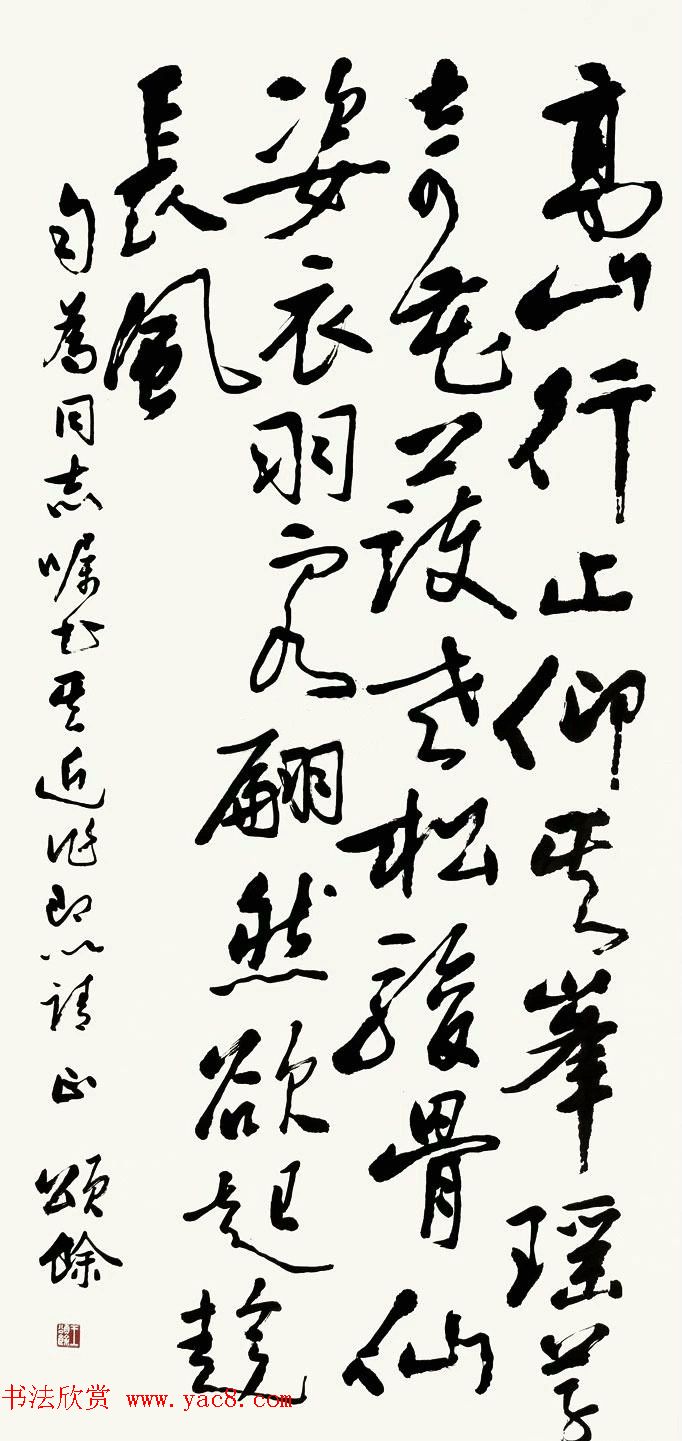 高山行止仰天峯瑶草
奇花護老松駿骨仙
姿衣羽客翩然欲起趁
長風
匋為同志嘱书其近作即以請正 頌餘
書法欣賞 www.yac8.com